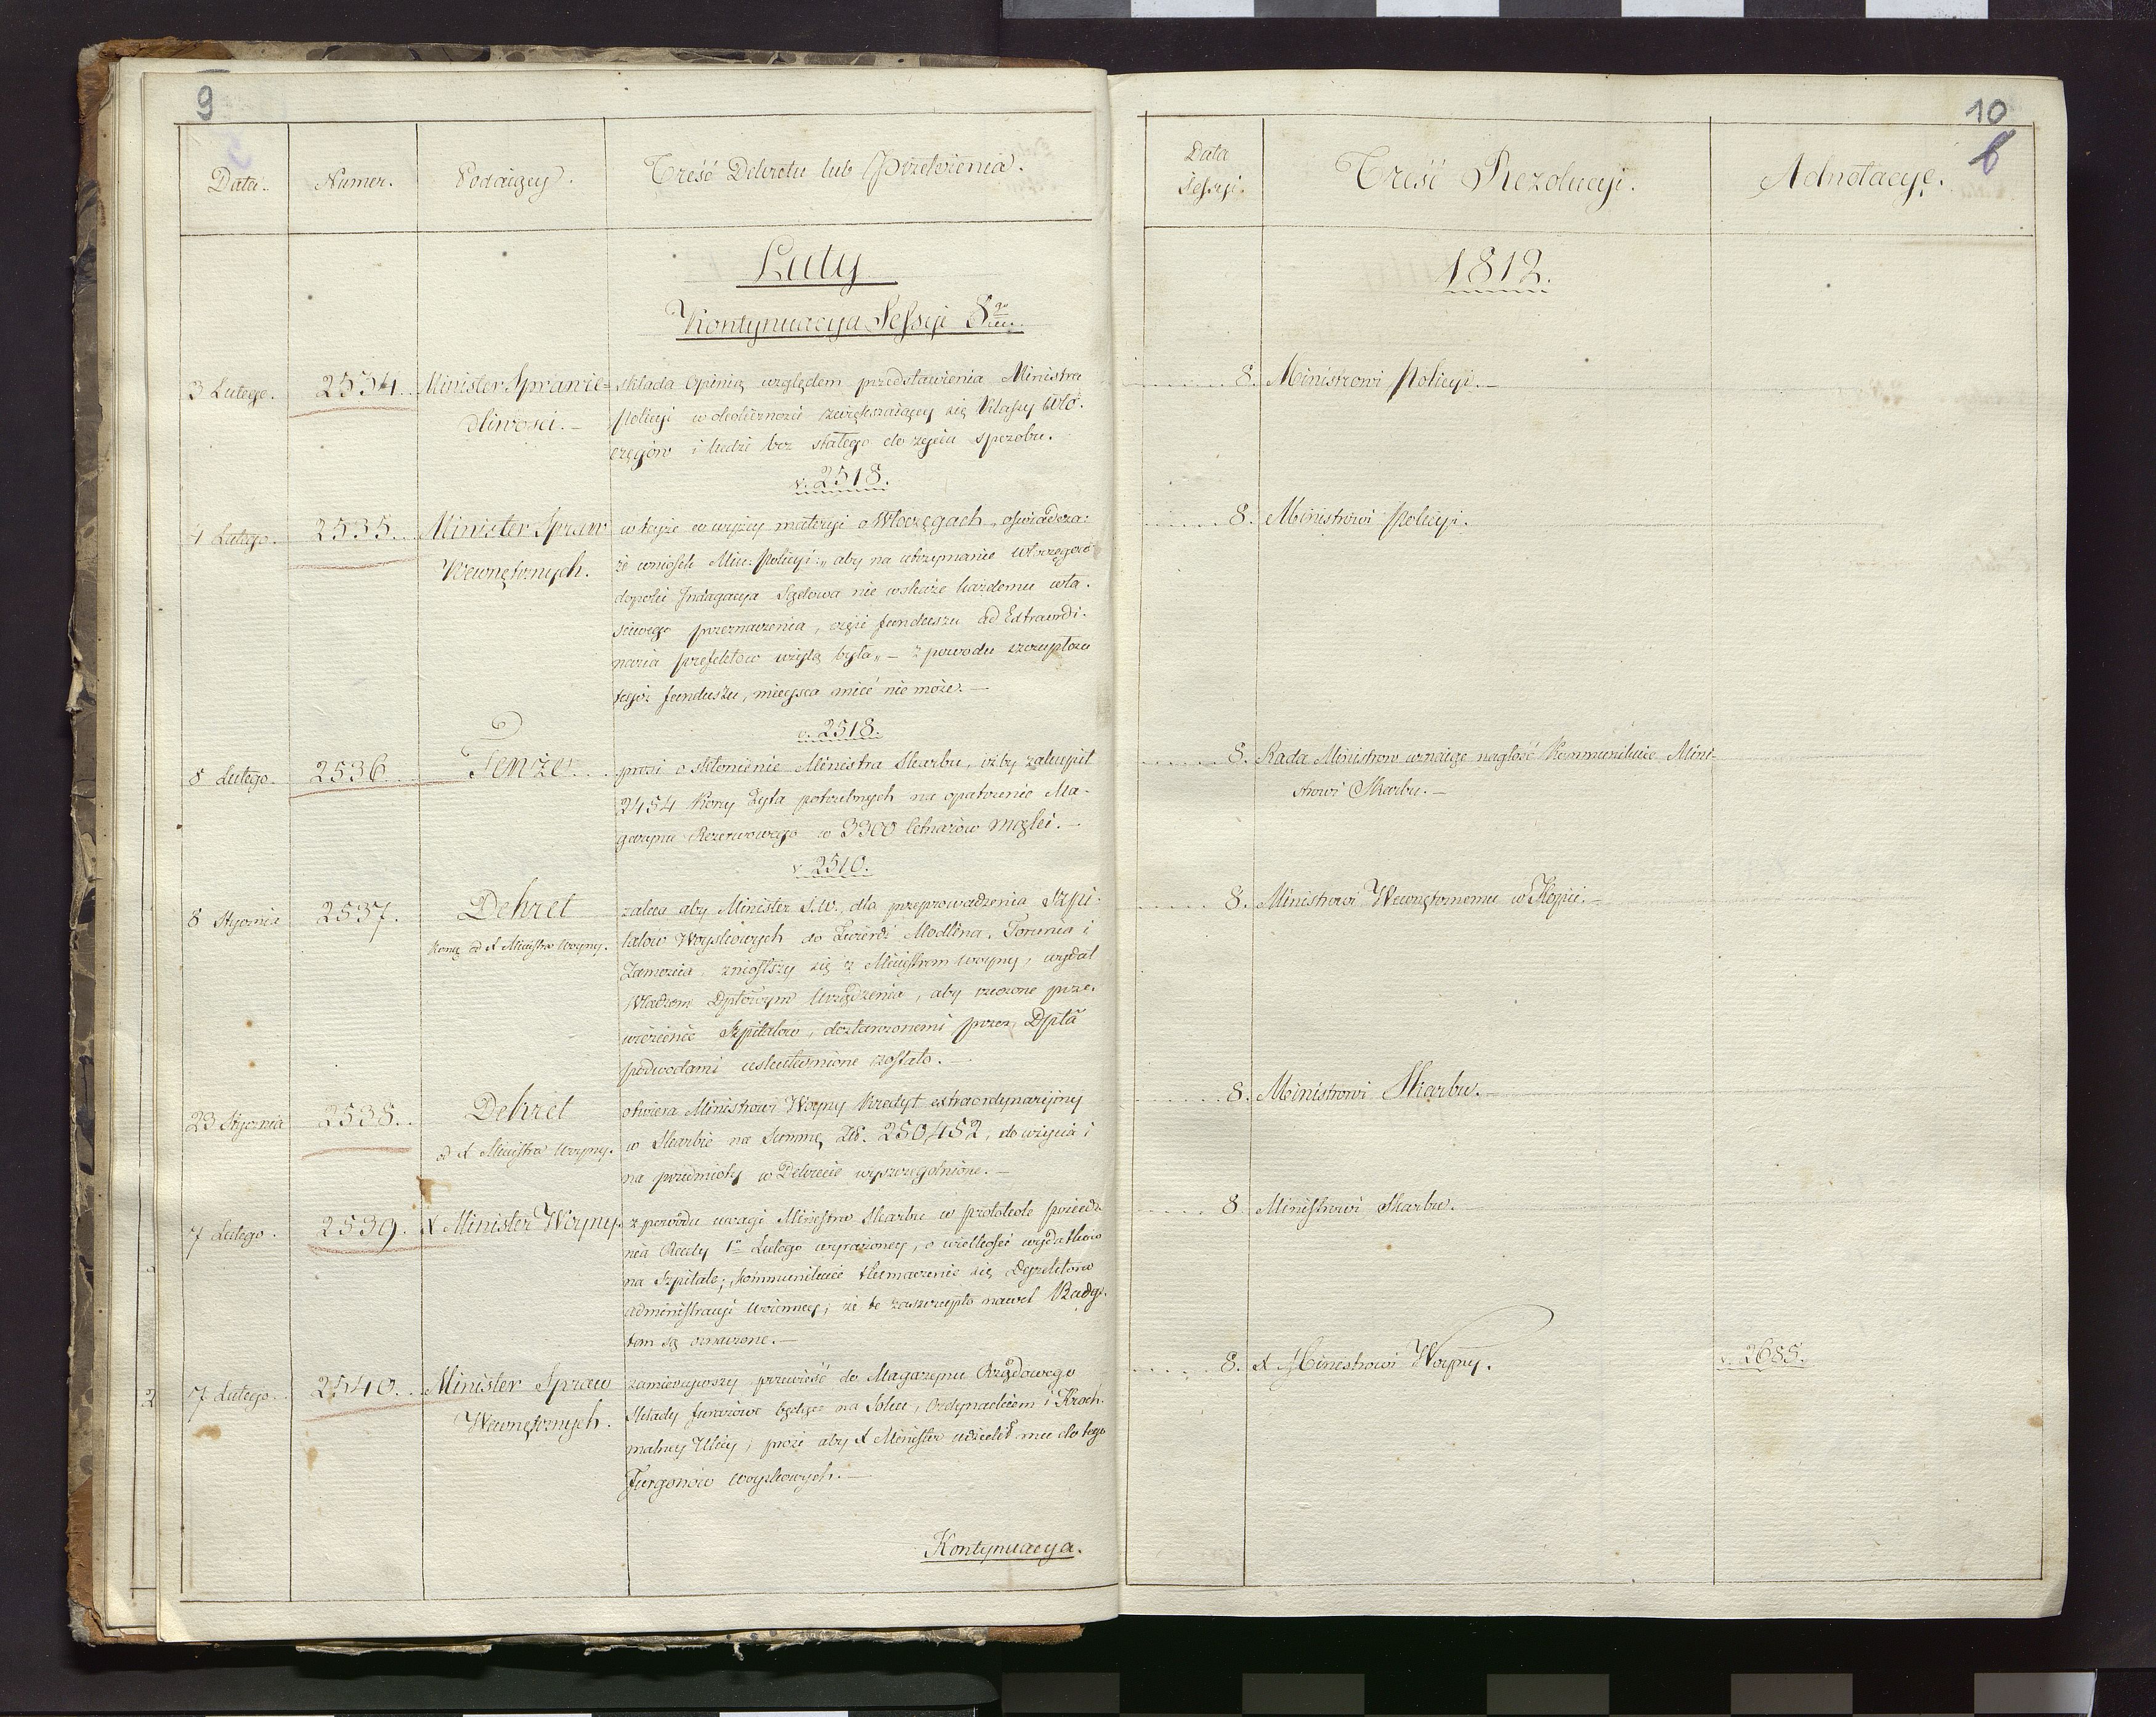 9
Data.
Numer.
Podaiący.
Treść Dekretu lub Przełożenia.
Luty
Kontynuacya Sessyi 8
3 Lutego.
2534.
Minister Sprawie-
dliwości.
składa Opinią względem przedstawienia Ministra
Policyi w okoliczności zwiększaiącey się Klassy Włó-
częgów i ludzi bez stałego do życia sposobu.
v. 2518.
4 Lutego.
2535.
Minister Spraw
Wewnętrznych.
w teyże co wyżey materyi o Włoczęgach, oświadcza:
że wniosek Min: Policyi: „aby na utrzymanie włoczęgów
dopóki Indagacya Sądowa nie wskaże każdemu wła-
ściwego przeznaczenia, część funduszu ad Extraordi-
naria Prefektów użytą była„ — z powodu szczupłości
tegóż funduszu, mieysca mieć nie może. —
v. 2518.
8 Lutego.
2536.
Tenże
prosi o skłonienie Ministra Skarbu, iżby zakupił
2454 Korcy Żyta potrzebnych na opatrzenie Ma-
gazynu Rezerwowego w 3300 Cetnarów mąki. —
v. 2510.
8 Stycznia
2537.
Dekret
Kom. od X Ministra Woyny.
zaleca aby Minister S.W. dla przeprowadzenia Szpi-
talów Woyskowych do Twierdz Modlina, Torunia i
Zamościa, zniósłszy się z Ministrem Woyny, wydał
Władzom Dptowym Urządzenia, aby rzeczone prze-
wiezienie Szpitalów, dostarczonemi przez Dpta
podwodami uskutecznione zostało. —
23 Stycznia
2538.
Dekret
od X Ministra Woyny.
otwiera Ministrowi Woyny Kredyt extraordynaryiny
w Skarbie na Summę Zł. 250,452, do użycia i
na przedmioty w Dekrecie wyszczególnione. —
7 Lutego.
2539.
X Minister Woyny.
z powodu uwagi Ministra Skarbu w protokole posiedze-
nia Rady 1º Lutego wyrażoney, o wielkości wydatków
na Szpitale; kommunikuie tłumaczenie się Dyrektora
administracyi wojenney; że te zaszczupło nawet Budże-
tem są oznaczone. —
2
7 Lutego.
2540.
Minister Spraw
Wewnętrznych.
zamierzywszy przenieść do Magazynu Rządowego
Składy furażowe będące na Solcu, Ordynackiem i Kroch-
malney Ulicy; prosi aby X Minister udzielił mu do tego
Furgonów woyskowych. —
Kontynuacya.
10
6
Data
Sessyi.
Treść Rezolucyi.
Adnotacye.
1812.
8. Ministrowi Policyi. —
8. Ministrowi Policyi.
8. Rada Ministrów uznaiąc nagłość Kommunikuie Mini-
strowi Skarbu. —
8. Ministrowi Wewnętrznemu w Kopii. —
8. Ministrowi Skarbu. —
8 Ministrowi Skarbu. —
8. X Ministrowi Woyny.
v. 2685.